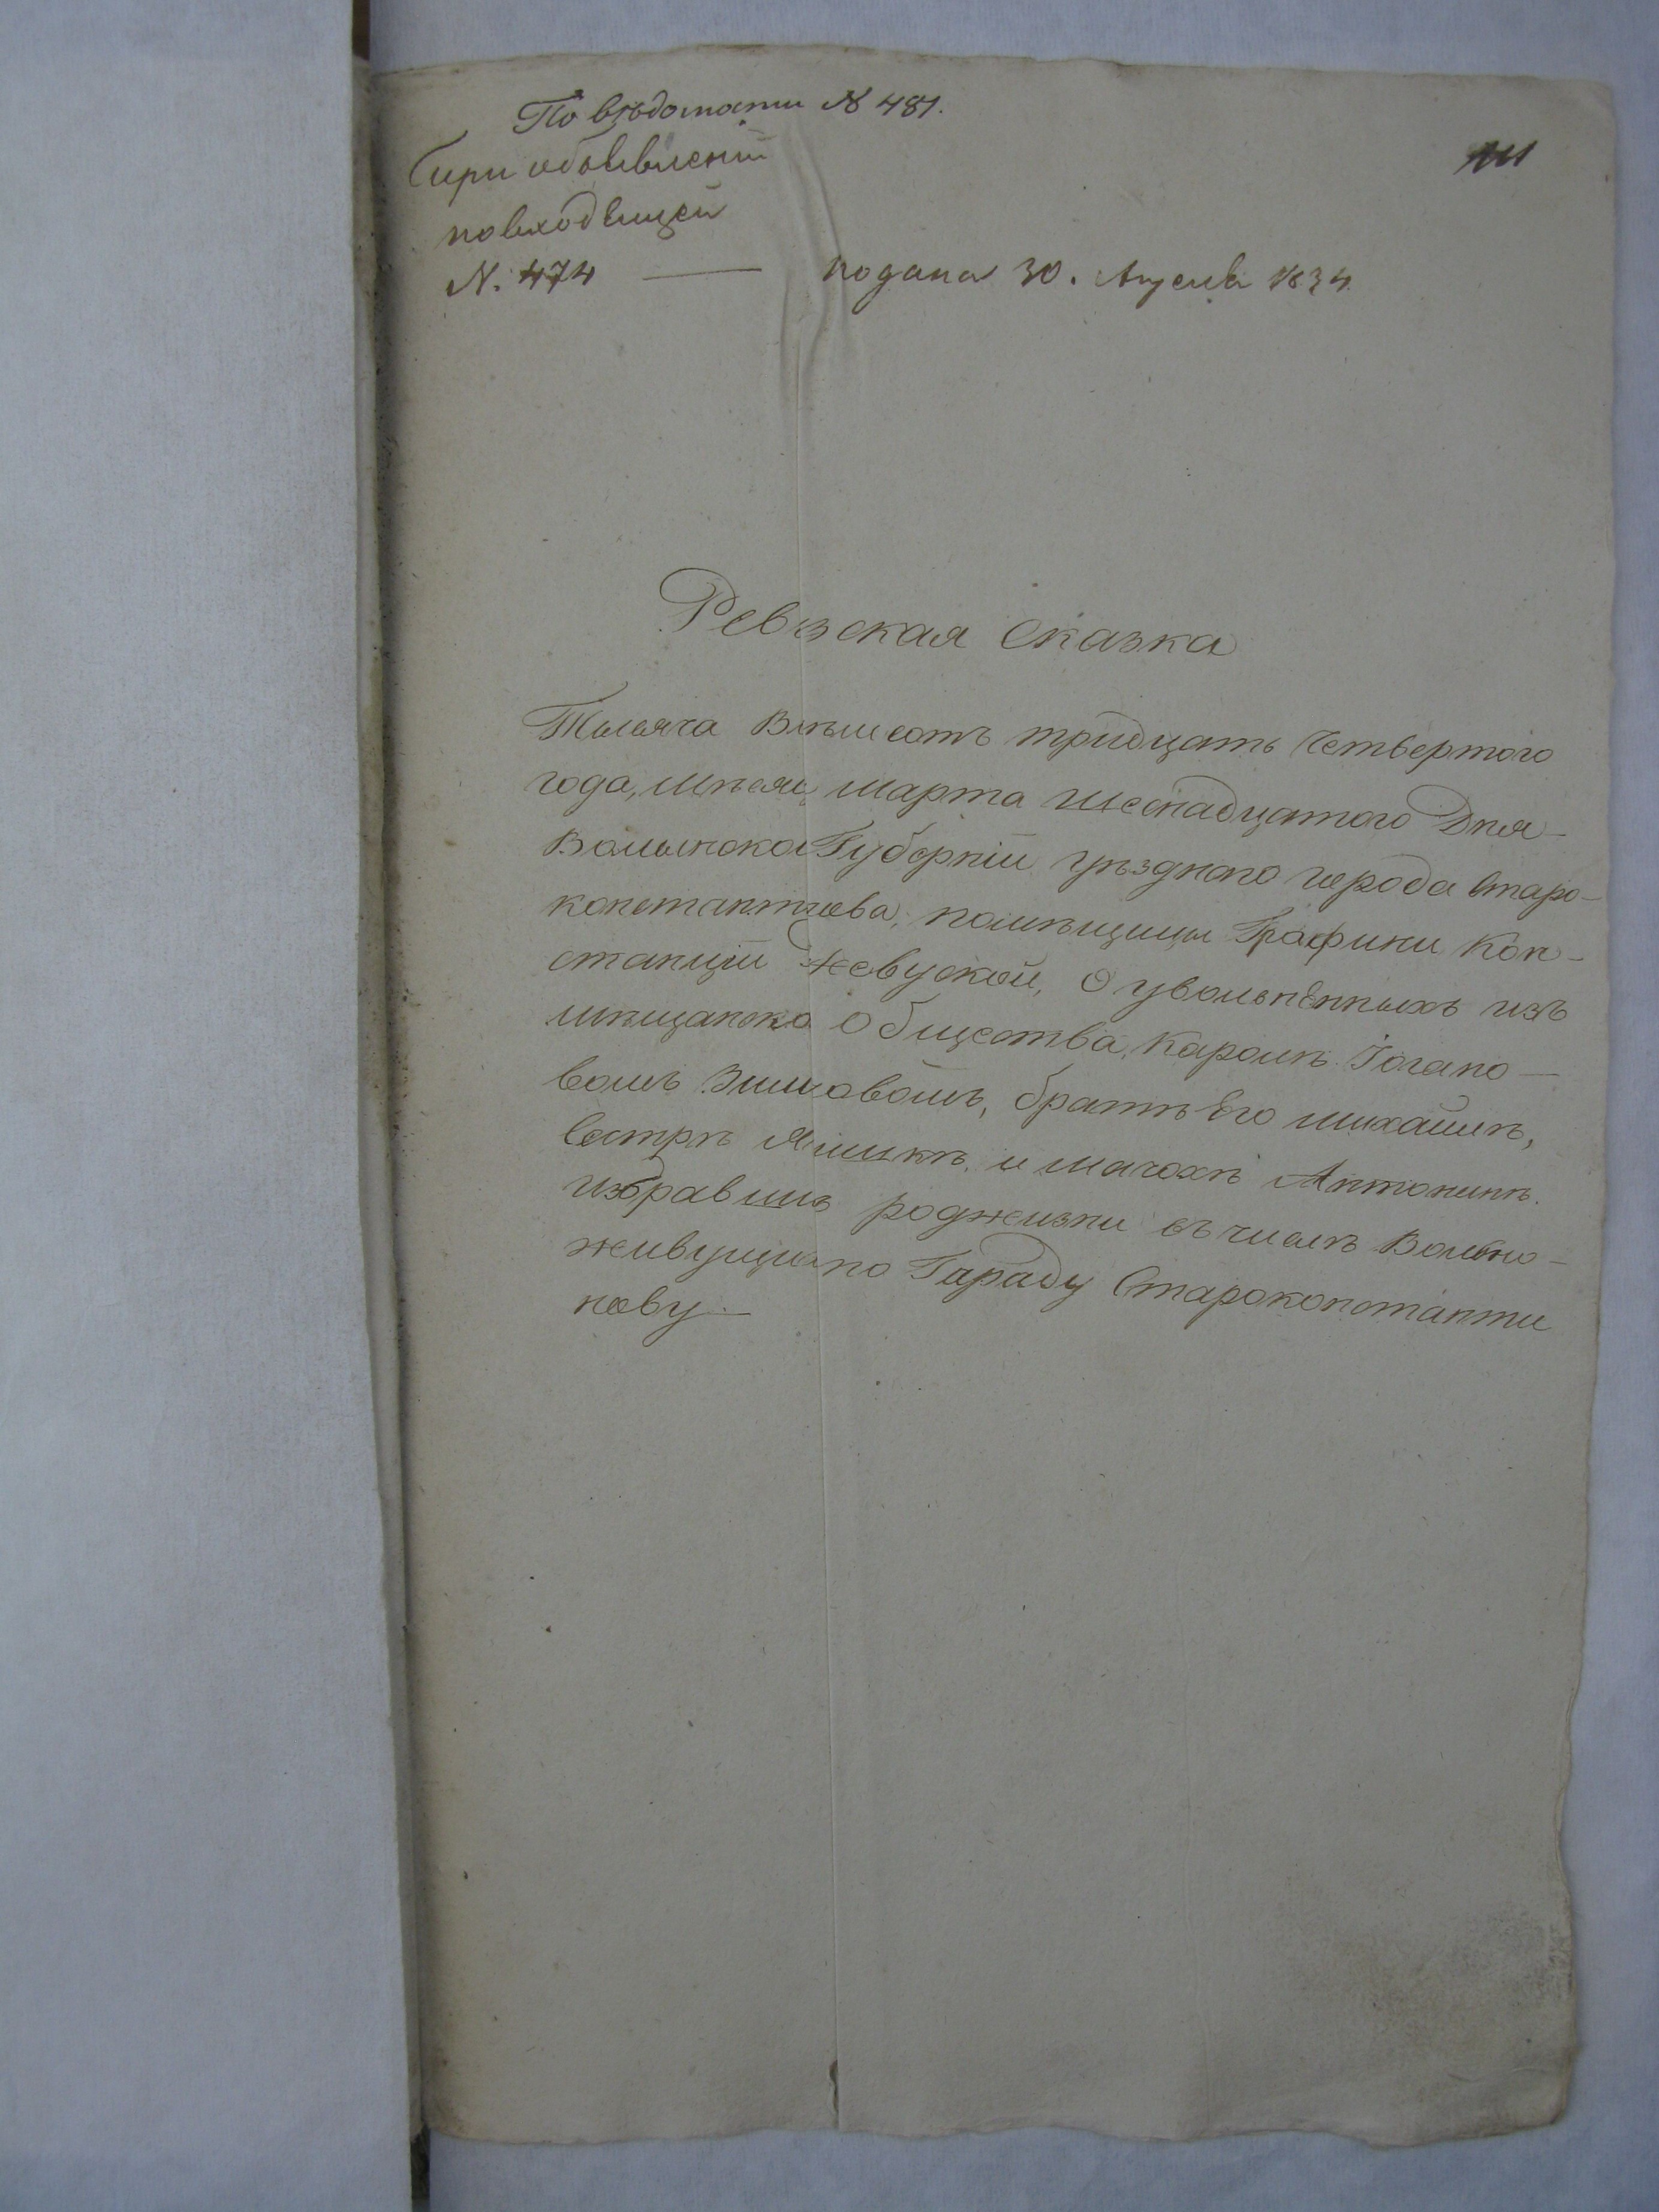 По вѣдомости № 481.
При объявленіи
повходящей
N. 474 — подана 30. Апреля 1834.
111
Ревизская Сказка
Тысяча Вѣсмсотъ тридцать Четвертого
года, мѣсяц марта шеснадцатого Дня
Волынской Губерніи уѣздного города Старо-
константинова, помѣщицы Графини Кон-
станціи Жевуской, О увольненныхъ изъ
мѣщанско Общества, Каролѣ Іогано-
вомъ, братѣ Его михайлѣ,
Сестрѣ и мачохѣ Антонинѣ.
избравших роджизни въ числѣ Вольно-
живущих по Гараду Староконстанти
нову.—